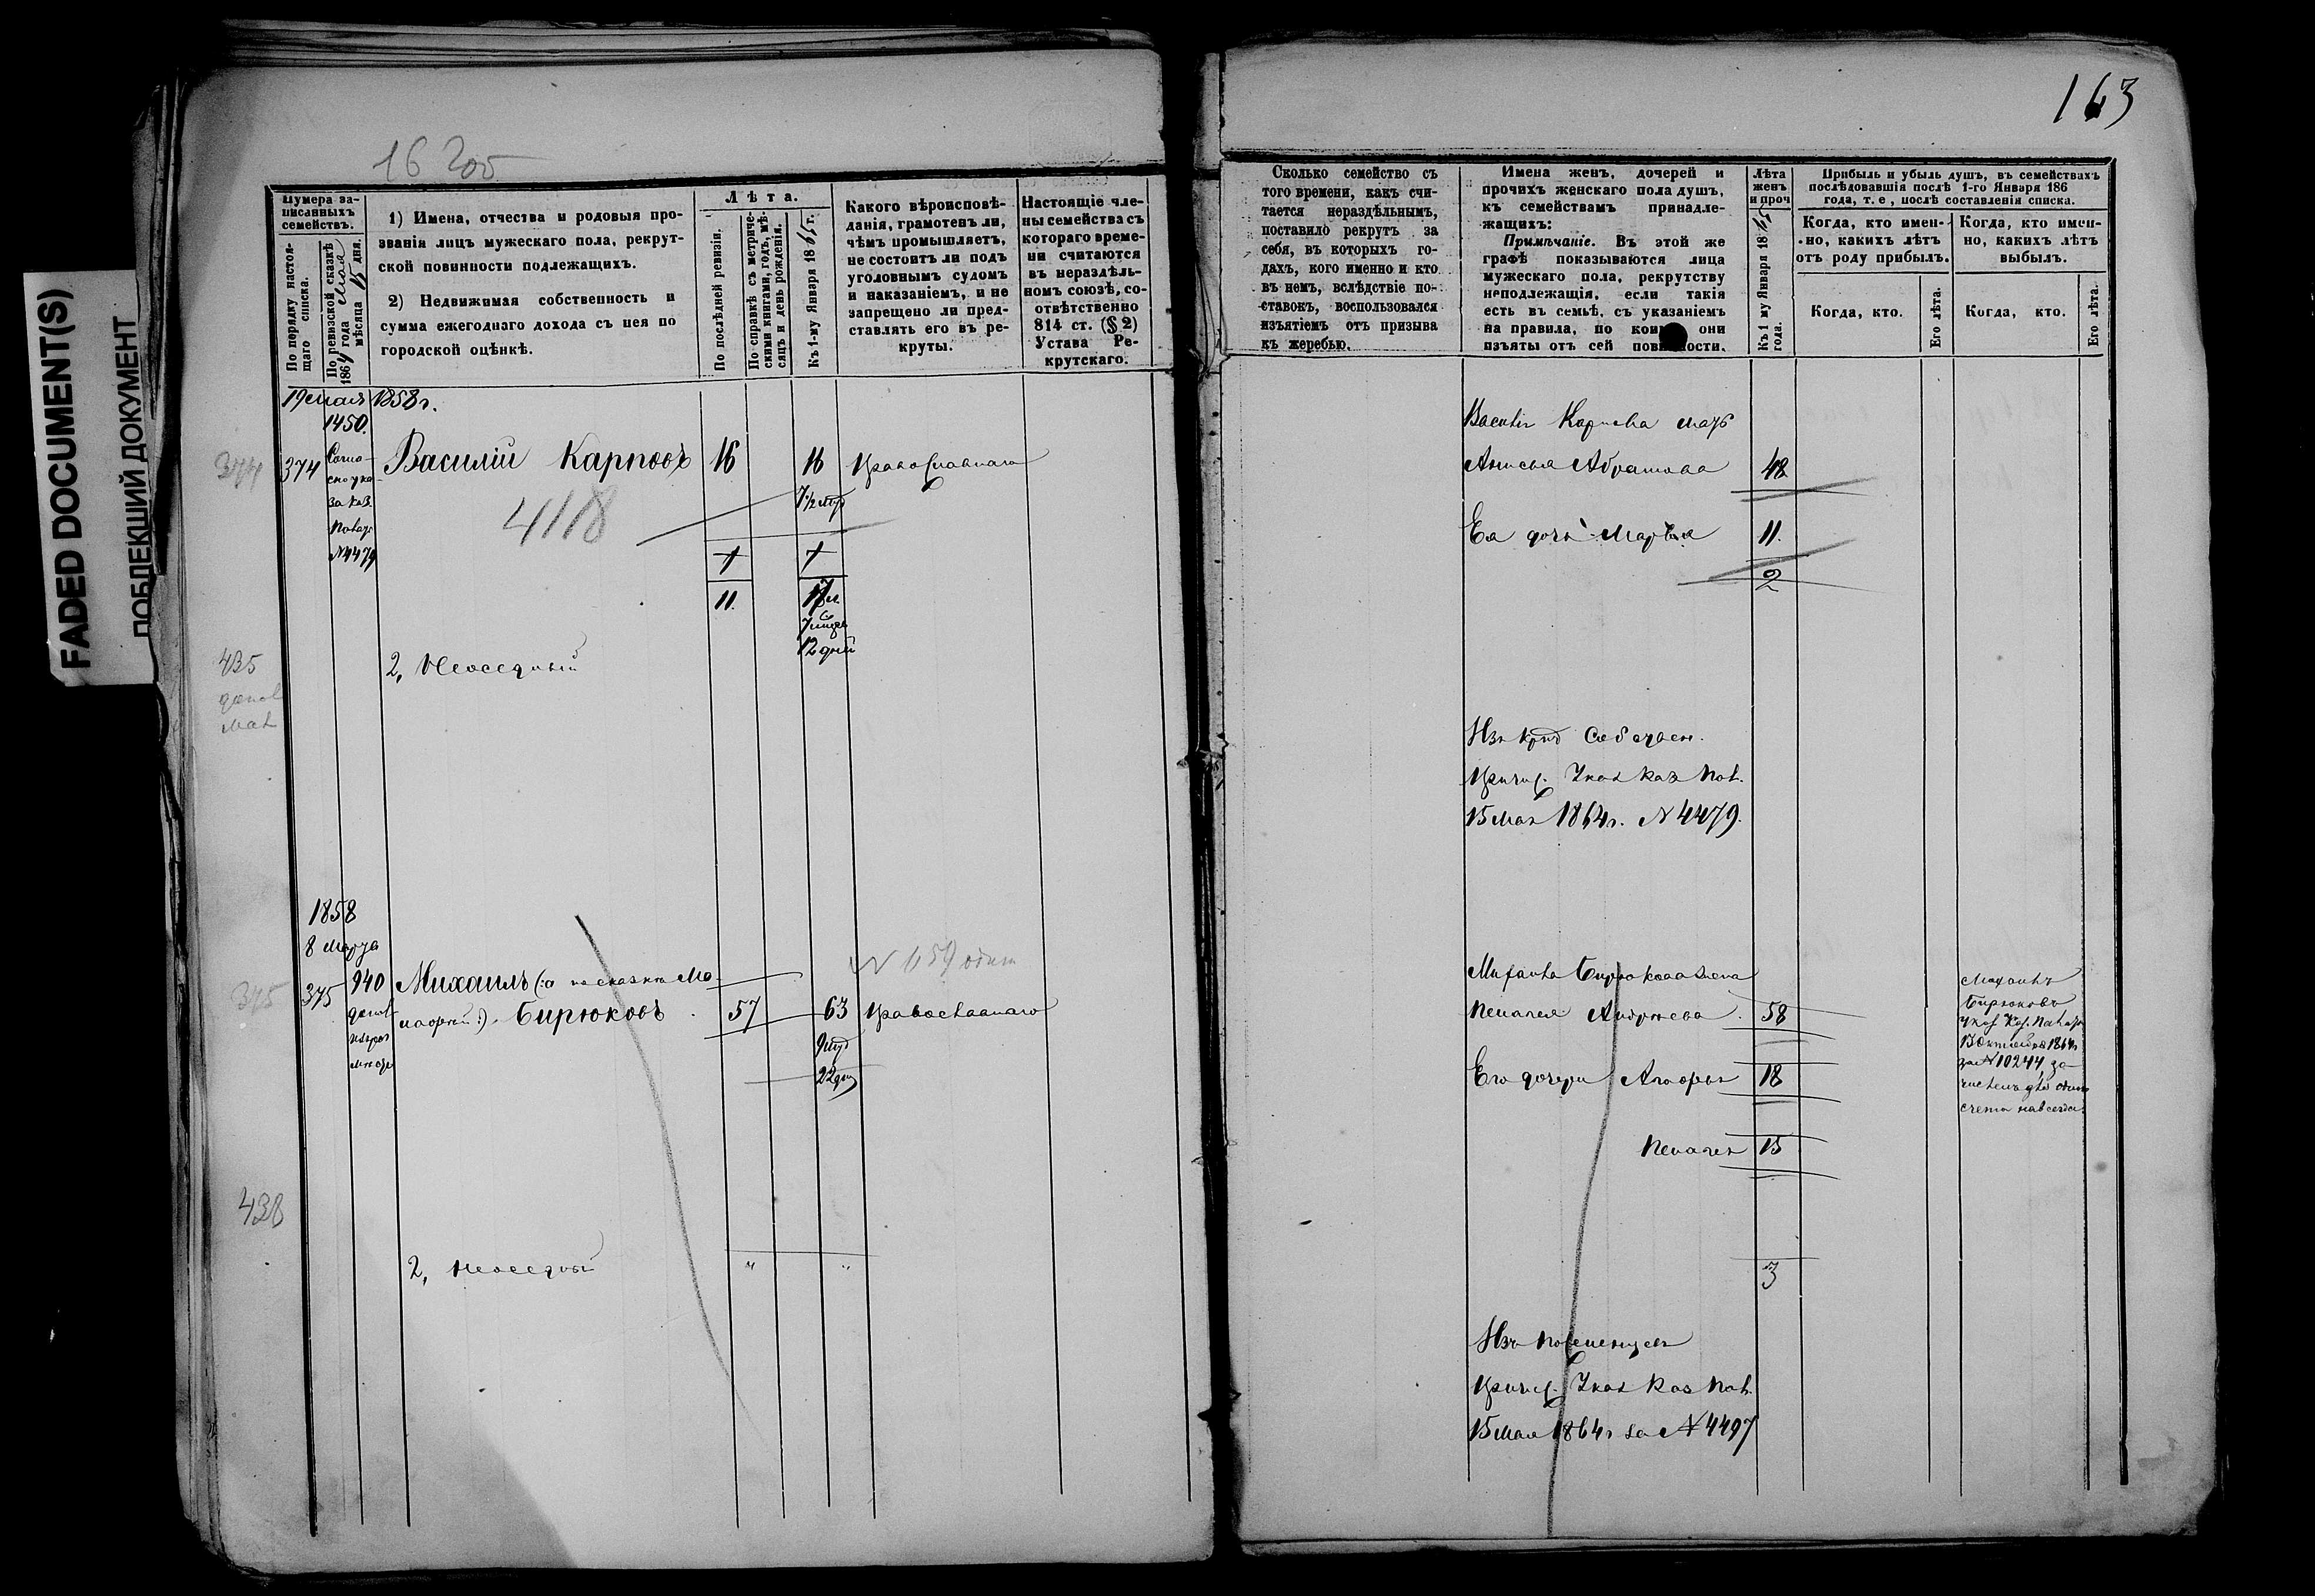 FADED DOCUMENT(S)
ПОБЛЕКШИЙ ДОКУМЕНТ
163
16
Нумера за-
писанныхъ
семействъ.
По порядку настоя-
щаго списка.
По ревизской сказкѣ
1864 года Мая
мѣсяца 15 дня.
1) Имена, отчества и родовыя про-
званія лицъ мужескаго пола, рекрут-
ской повинности подлежащихъ.
2) Недвижимая собственность и
сумма ежегоднаго дохода съ нея по
городской оцѣнкѣ.
Лѣта.
По послѣдней ревизіи.
По справкѣ съ метриче-
скими книгами, годъ, мѣ-
сяцъ и день рожденія.
Къ 1-му Января 1865 г.
Какого вѣроисповѣ-
данія, грамотенъ ли,
чѣмъ промышляетъ,
не состоитъ ли подъ
уголовнымъ судомъ
и наказаніемъ, и не
запрещено ли пред-
ставлять его въ ре-
круты.
Настоящіе чле-
ны семейства съ
котораго време-
ни считаются
въ нераздѣль-
номъ союзѣ, со-
отвѣтственно
814 ст. (§ 2)
Устава Ре-
крутскаго.
Сколько семейство съ
того времени, какъ счи-
тается нераздѣльнымъ,
поставило рекрутъ за
себя, въ которыхъ го-
дахъ, кого именно и кто
въ немъ, вслѣдствіе по-
ставокъ, воспользовался
изъятіемъ отъ призыва
къ жеребью.
Имена женъ, дочерей и
прочихъ женскаго пола душъ,
къ семействамъ принадле-
жащихъ:
Примѣчаніе. Въ этой же
графѣ показываются лица
мужескаго пола, рекрутству
неподлежащія, если такія
есть въ семьѣ, съ указаніемъ
на правила, по коимъ они
изъяты отъ сей повинности.
Лѣта
женъ
и проч
Къ 1 му Января 1865
года.
Прибыль и убыль душъ, въ семействахъ
послѣдовавшія послѣ 1-го Января 186
года, т. е, послѣ составленія списка.
Когда, кто имен-
но, какихъ лѣтъ
отъ роду прибылъ.
Когда, кто.
Его лѣта.
Когда, кто имен-
но, какихъ лѣтъ
выбылъ.
Когда, кто.
Его лѣта.
19 мая 1858 г.
1450.
374 374 Согла-
сно ука-
за Каз.
Палаты
N 4479
Василій Карповъ 16 16 Православнаго
7 1/2 мѣс
4118
1 1
11. 17
7 мѣся
12 дней
2, Неоседлый
435
Василія Карпова мать
Анисья Абрамова 48
Ея дочь Марья 11.
2
Причис. Указ Каз Пал.
15 Мая 1864 г. N 4479.
1858
8 Марта
375 375 940 Михаилъ (:а по сказкѣ Ма-
Бирюковъ 57 63 Православнаго
9 мѣс
22 дня
N 659
438
2, неоседлый
Михаила Бирюкова жена
Пелагея Андреева 58
Его дочери 18
Пелагея 15
3
Причис. Указ Каз Пал.
15 Мая 1864 г за N 4497
Михаилъ
Бирюковъ
Указ. Каз. Палаты
13 Октября 1864 г
за N 10244, за-